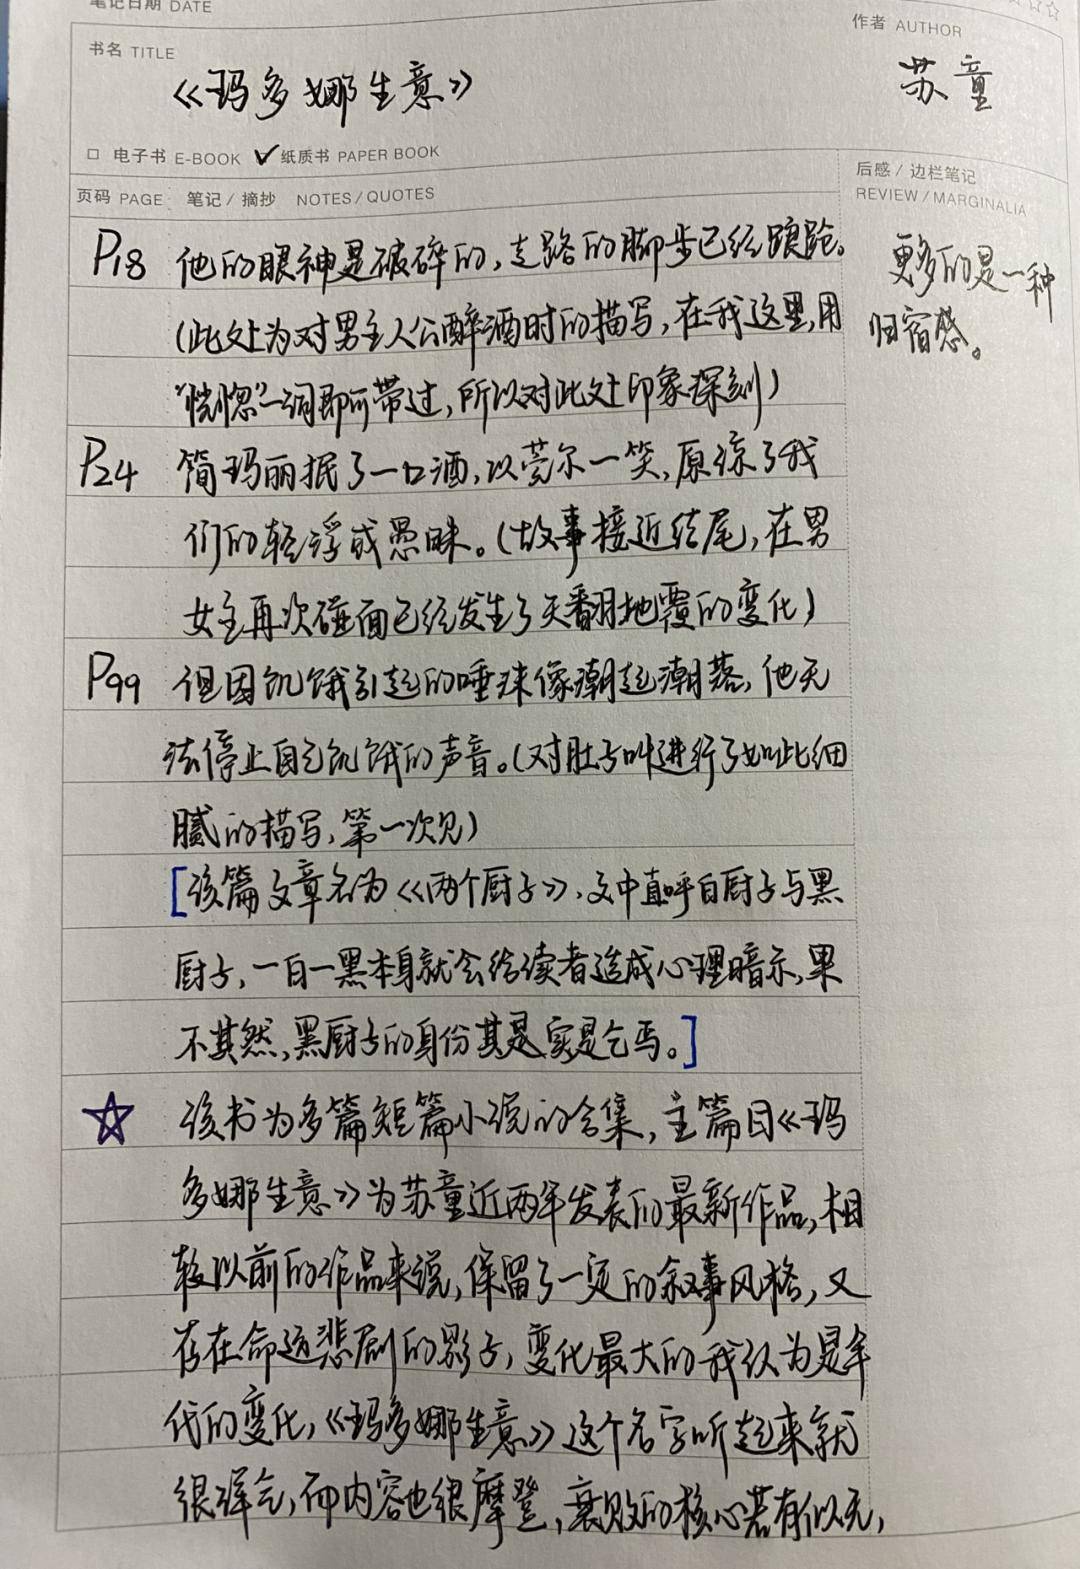 笔记日期 DATE
书名 TITLE
作者 AUTHOR
《玛多娜生意》
苏童
电子书 E-BOOK 纸质书 PAPER BOOK
页码 PAGE 笔记/摘抄 NOTES/QUOTES
后感/边栏笔记
REVIEW/MARGINALIA
P18 他的眼神是破碎的，走路的脚步已经踉跄。
(此处为对男主人公醉酒时的描写，在我这里，用
“恍惚”一词即可带过，所以对此处印象深刻)
更多的是一种
归宿感。
P24 简玛丽抿了一口酒，以莞尔一笑，原谅了我
们的轻浮或愚昧。(故事接近结尾，在男
女主再次碰面已经发生了天翻地覆的变化)
P99 但因饥饿引起的唾沫像潮起潮落，他无
法停止自己饥饿的声音。(对肚子叫进行了如此细
腻的描写，第一次见)
[该篇文章名为《两个厨子》，文中直呼白厨子与黑
厨子，一白一黑本身就会给读者造成心理暗示，果
不其然，黑厨子的身份其是实是乞丐。]
☆ 该书为多篇短篇小说的合集，主篇目《玛
多娜生意》为苏童近两年发表的最新作品，相
较以前的作品来说，保留了一定的叙事风格，又
存在命运悲剧的影子，变化最大的我认为是年
代的变化，《玛多娜生意》这个名字听起来就
很洋气，而内容也很摩登，衰败的核心若有似无，